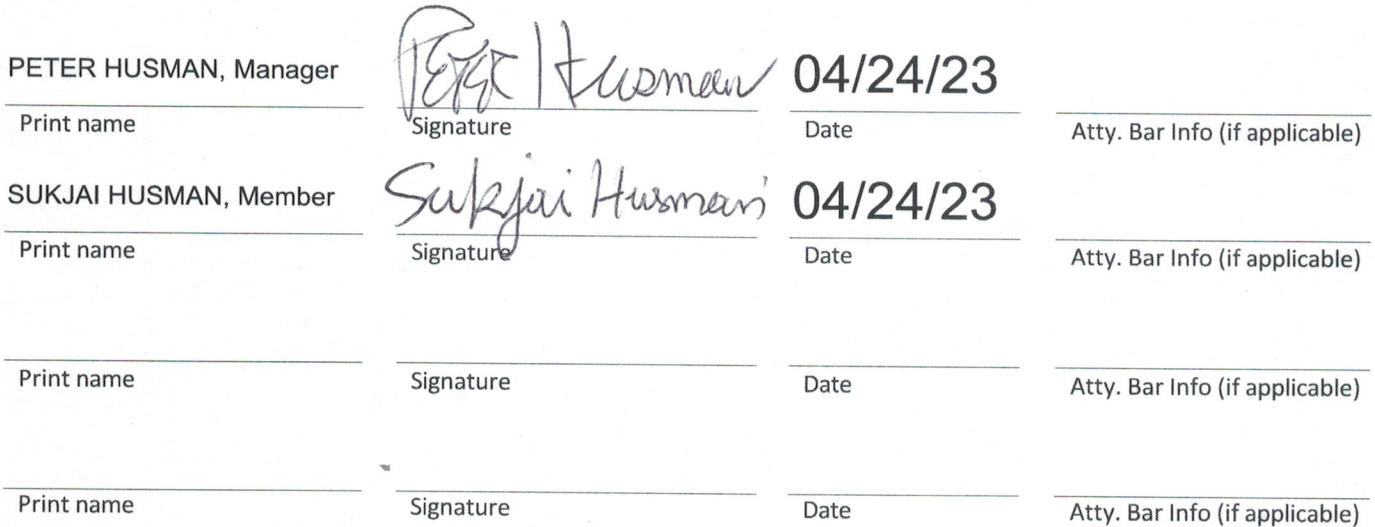 PETER HUSMAN, Manager Peter Husman 04/24/23
Print name Signature Date Atty. Bar Info (if applicable)
SUKJAI HUSMAN, Member Sukjai Husman 04/24/23
Print name Signature Date Atty. Bar Info (if applicable)
Print name Signature Date Atty. Bar Info (if applicable)
Print name Signature Date Atty. Bar Info (if applicable)